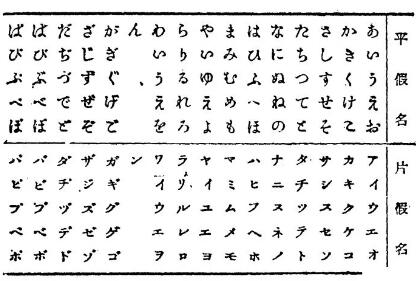 平假名
あいうえお
かきくけこ
さしすせそ
たちつてと
なにぬねの
はひふへほ
まみむめも
やいゆえよ
らりるれろ
わいうえを
ん
がぎぐげご
ざじずぜぞ
だぢづでど
ばびぶべぼ
ぱぴぷぺぽ
片假名
アイウエオ
カキクケコ
サシスセソ
タチツテト
ナニヌネノ
ハヒフヘホ
マミムメモ
ヤイユエヨ
ラリルレロ
ワイウエヲ
ン
ガギグゲゴ
ザジズゼゾ
ダヂヅデド
バビブベボ
パピプペポ